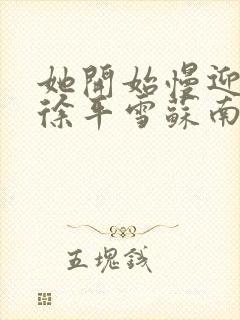 她開始慢迎
徐平雪蘇南
五塊錢